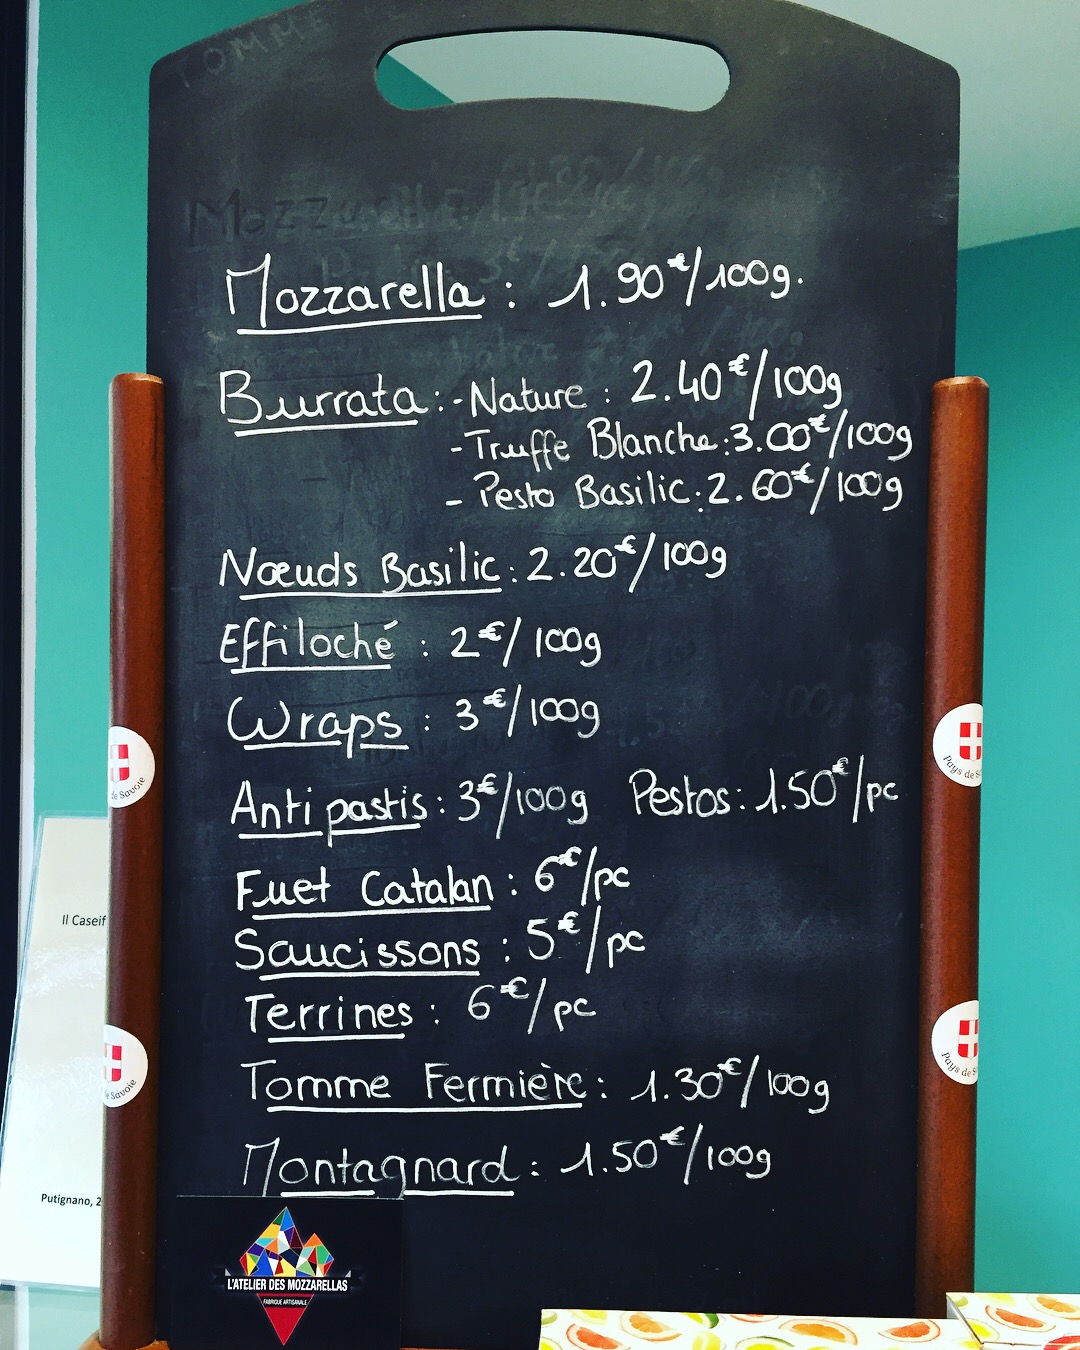 TOMME
Mozzarella
Mozzarella : 1.90€/100g.
Burrata : - Nature : 2.40€/100g
- Truffe Blanche : 3.00€/100g
- Pesto Basilic : 2.60€/100g
Nœuds Basilic : 2.20€/100g
Effiloché : 2€/100g
Wraps : 3€/100g
Anti pastis : 3€/100g Pestos : 1.50€/pc
Fuet Catalan : 6€/pc
Saucissons : 5€/pc
Terrines : 6€/pc
Tomme Fermière : 1.30€/100g
Montagnard : 1.50€/100g
L'ATELIER DES MOZZARELLAS
FABRIQUE ARTISANALE
Il Caseif
Putignano, 2
de Savoie
e Savoie
Pays de S
Pays de S